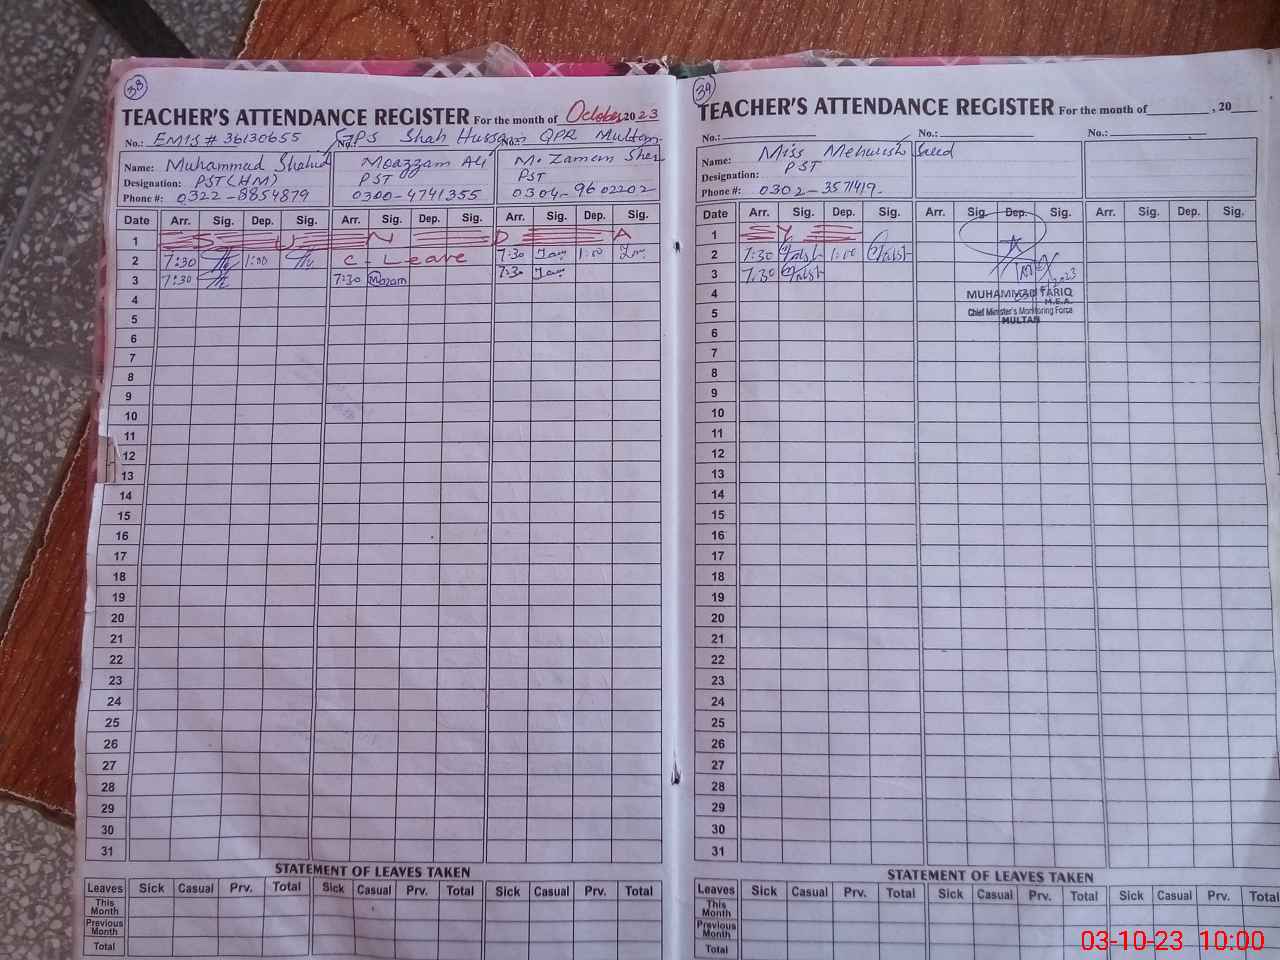 38
TEACHER'S ATTENDANCE REGISTER For the month of October 2023
No.: EMIS # 36130655 No.: GPS Shah Hussain No.: QPR Multan
Name: Muhammad Shahid Moazzam Ali M. Zaman Sher
Designation: PST (HM) PST PST
Phone #: 0322-8854879 0300-4741355 0304-9602202
Date Arr. Sig. Dep. Sig. Arr. Sig. Dep. Sig. Arr. Sig. Dep. Sig.
1 S U N D A
2 7:30 1:00 C. Leave 7:30 1:00
3 7:30 7:30 Mozam 7:30
4
5
6
7
8
9
10
11
12
13
14
15
16
17
18
19
20
21
22
23
24
25
26
27
28
29
30
31
STATEMENT OF LEAVES TAKEN
Leaves Sick Casual Prv. Total Sick Casual Prv. Total Sick Casual Prv. Total
This Month
Previous Month
Total
39
TEACHER'S ATTENDANCE REGISTER For the month of , 20
No.: No.: No.:
Name: Miss Mehwish Saeed
Designation: PST
Phone #: 0302-3571419
Date Arr. Sig. Dep. Sig. Arr. Sig. Dep. Sig. Arr. Sig. Dep. Sig.
1 Y
2 7:30 1:00
3 7:30
4
5
MUHAMMAD TARIQ
M.E.A.
Chief Minister's Monitoring Force
MULTAN
6
7
8
9
10
11
12
13
14
15
16
17
18
19
20
21
22
23
24
25
26
27
28
29
30
31
STATEMENT OF LEAVES TAKEN
Leaves Sick Casual Prv. Total Sick Casual Prv. Total Sick Casual Prv. Total
This Month
Previous Month
Total
03-10-23 10:00